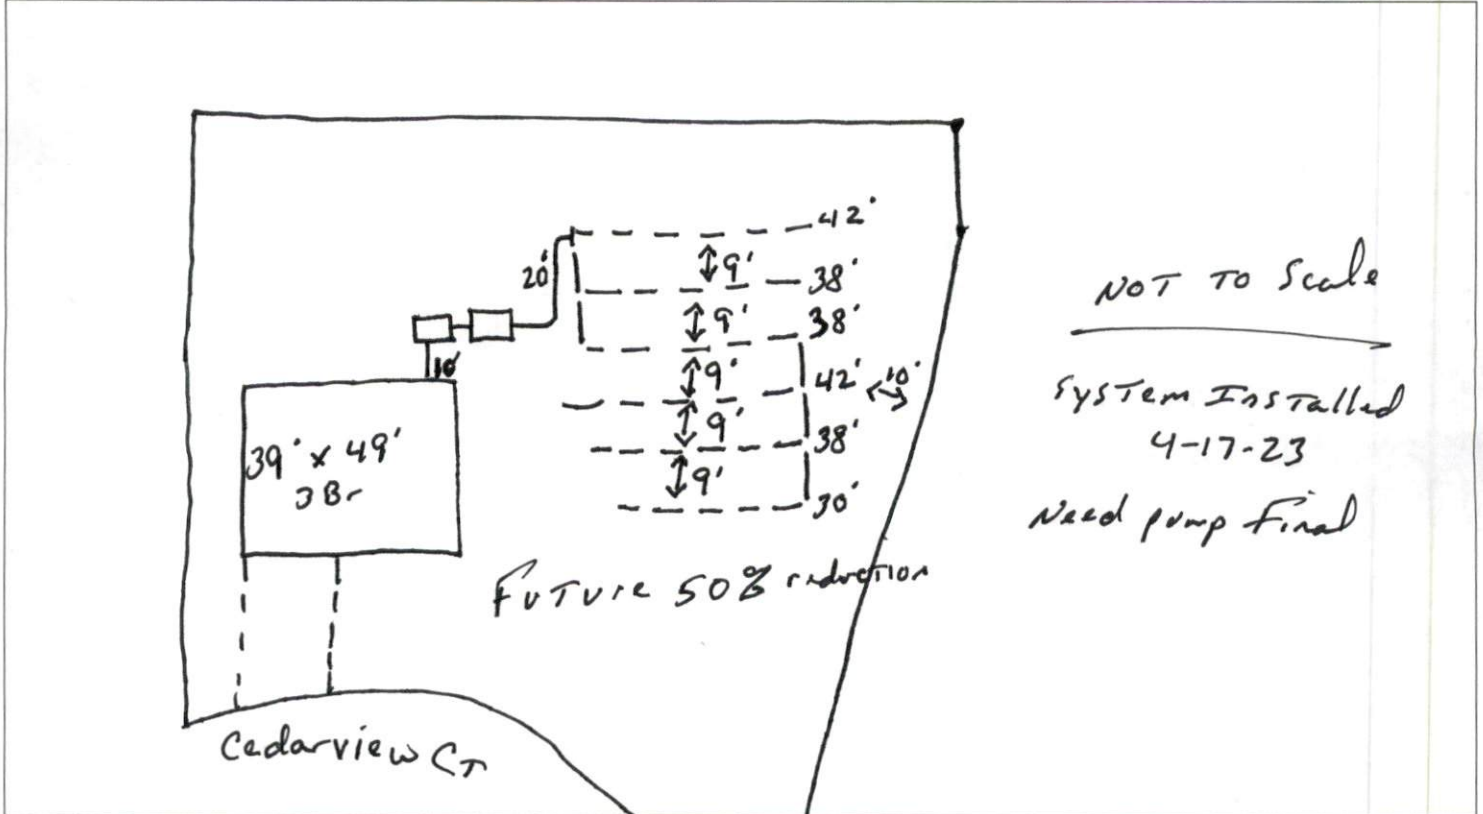 42'
20'
9'
38'
9'
38'
10'
9'
42' 10'
9'
38'
9'
30'
39' x 49'
3 Br
Future 50% reduction
Cedarview CT
NOT TO Scale
System Installed
4-17-23
Need pump Final